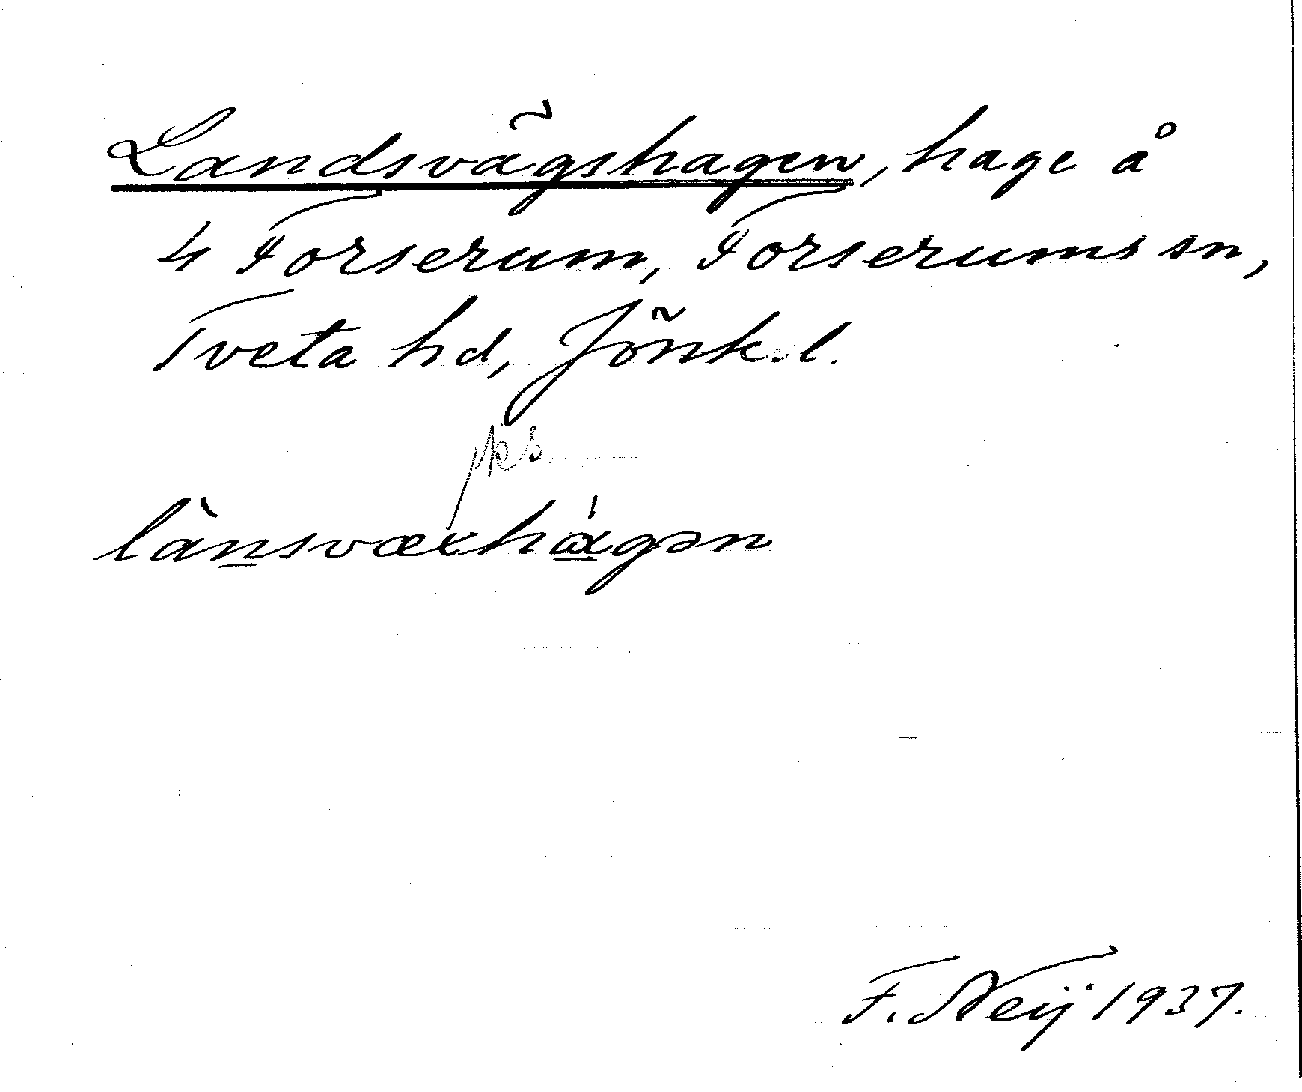 Landsvägshagen, hage å
4 Forserum, Forserums sn,
Tveta hd, Jönk. l.
lànsvæxhágən
F. Neij 1937.